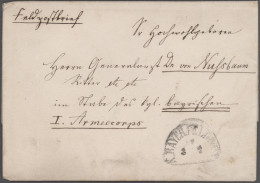 Feldpostbrief
Sr Hochwohlgeboren
Herrn Generalarzt Dr von Nußbaum
Ritter etc etc
im Stabe des Kgl. bayerischen
I. Armeecorps